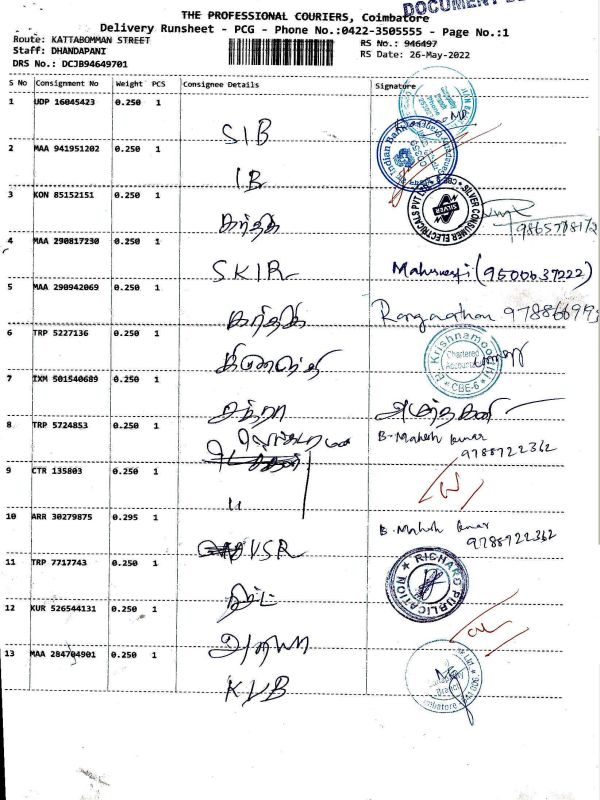 THE PROFESSIONAL COURIERS, Coimbatore
Delivery Runsheet - PCG - Phone No.:0422-3505555 - Page No.:1
Route: KATTABOMMAN STREET
RS No.: 946497
Staff: DHANDAPANI
RS Date: 26-May-2022
DRS No.: DCJB94649701
S No Consignment No Weight PCS Consignee Details Signature
1 UDP 16045423 0.250 1
SIB
2 MAA 941951202 0.250 1
Indian Bank
IB
3 KON 85152151 0.250 1
SILVER CONSUMER ELECTRICALS PVT
கார்த்தி
4 MAA 290817230 0.250 1
SKIR Maheswari (9500637222)
5 MAA 290942069 0.250 1
கார்த்தி
6 TRP 5227136 0.250 1
Krishnamoorthy
Chartered
Accountant
CBE-6
7 TXM 501540689 0.250 1
சந்தரா
8 TRP 5724853 0.250 1
B. Mahesh kumar
9788722362
9 CTR 135803 0.250 1
11
10 ARR 30279875 0.295 1
B. Mahesh kumar
9788722362
VSR
11 TRP 7717743 0.250 1
RICHARD PUBLICATION
12 KUR 526544131 0.250 1
13 MAA 284704901 0.250 1
KVB